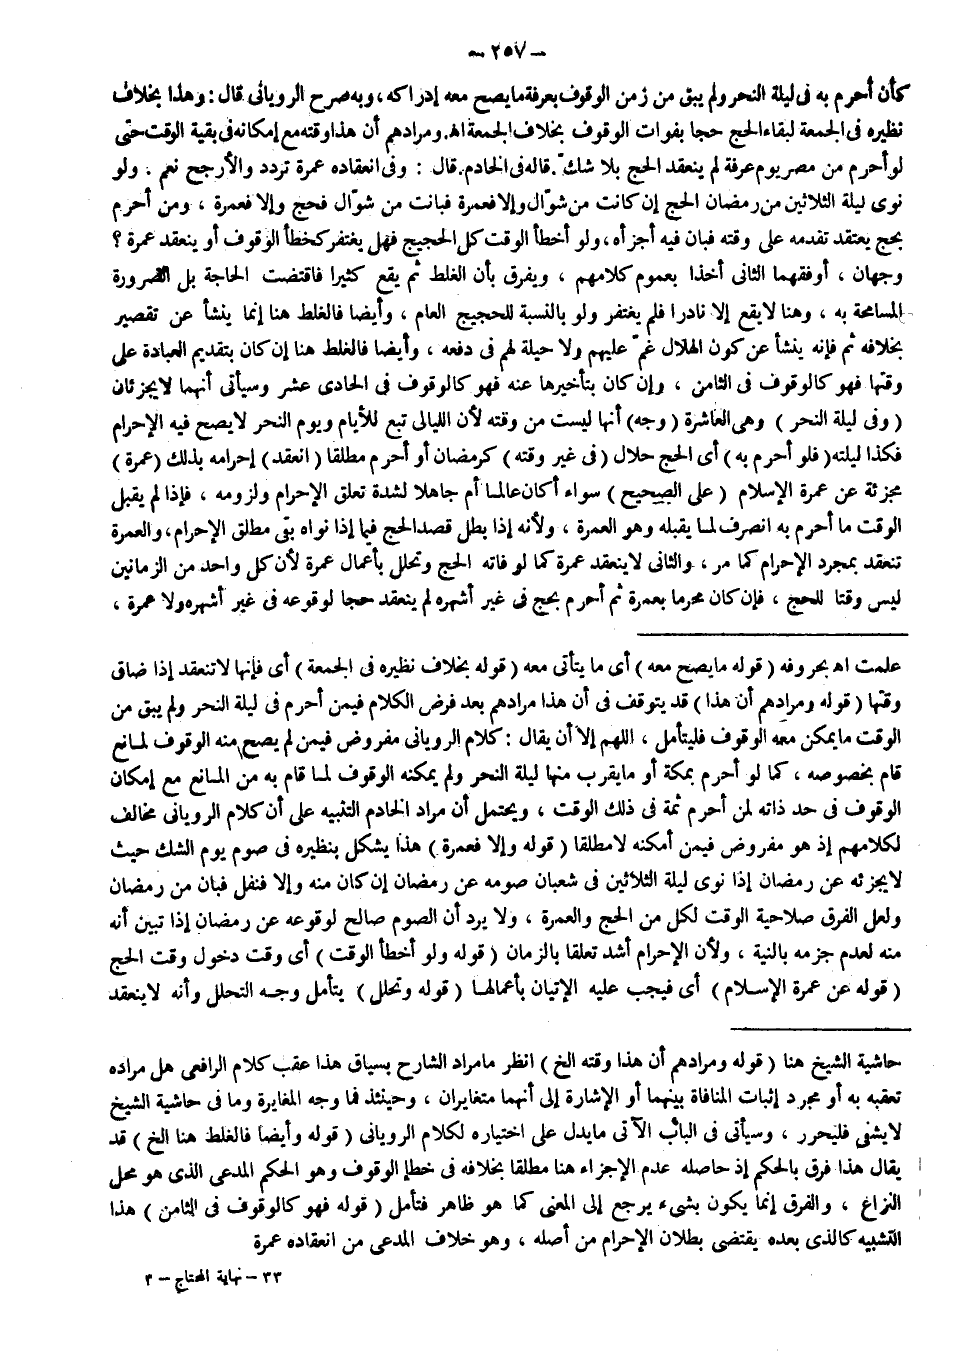 — ٢٥٧ —
كأن أحرم به فى ليلة النحر ولم يبق من زمن الوقوف بعرفة ما يصح معه إدراكه ، وبه صرح الرويانى قال : وهذا بخلاف
نظيره فى الجمعة لبقاء الحج حجا بفوات الوقوف بخلاف الجمعة اه. ومرادهم أن هذا وقته مع إمكانه فى بقية الوقت حتى
لو أحرم من مصر يوم عرفة لم ينعقد الحج بلا شك . قاله فى الخادم. قال : وفى انعقاده عمرة تردد والأرجح نعم . ولو
نوى ليلة الثلاثين من رمضان الحج إن كانت من شوّال وإلا فعمرة فبانت من شوّال فحج وإلا فعمرة ، ومن أحرم
بحج يعتقد تقدمه على وقته فبان فيه أجزأه، ولو أخطأ الوقت كل الحجيج فهل يغتفر كخطأ الوقوف أو ينعقد عمرة ؟
وجهان ، أوفقهما الثانى أخذا بعموم كلامهم ، ويفرق بأن الغلط ثم يقع كثيرا فاقتضت الحاجة بل الضرورة
المسامحة به ، وهنا لا يقع إلا نادرا فلم يغتفر ولو بالنسبة للحجيج العام ، وأيضا فالغلط هنا إنما ينشأ عن تقصير
بخلافه ثم فإنه ينشأ عن كون الهلال غمّ عليهم ولا حيلة لهم فى دفعه ، وأيضا فالغلط هنا إن كان بتقديم العبادة على
وقتها فهو كالوقوف فى الثامن ، وإن كان بتأخيرها عنه فهو كالوقوف فى الحادى عشر وسيأتى أنهما لا يجزئان
( وفى ليلة النحر ) وهى العاشرة ( وجه) أنها ليست من وقته لأن الليالى تبع للأيام ويوم النحر لا يصح فيه الإحرام
فكذا ليلته ( فلو أحرم به ) أى الحج حلال ( فى غير وقته ) كرمضان أو أحرم مطلقا ( انعقد ) إحرامه بذلك (عمرة )
مجزئة عن عمرة الإسلام ( على الصحيح ) سواء أكان عالما أم جاهلا لشدة تعلق الإحرام ولزومه ، فإذا لم يقبل
الوقت ما أحرم به انصرف لما يقبله وهو العمرة ، ولأنه إذا بطل قصد الحج فيما إذا نواه بقى مطلق الإحرام، والعمرة
تنعقد بمجرد الإحرام كما مر ، والثانى لا ينعقد عمرة كما لو فاته الحج وتحلل بأعمال عمرة لأن كل واحد من الزمانين
ليس وقتا للحج ، فإن كان محرما بعمرة ثم أحرم بحج فى غير أشهره لم ينعقد حجا لوقوعه فى غير أشهره ولا عمرة ،
علمت اه بحروفه ( قوله ما يصح معه ) أى ما يتأتى معه ( قوله بخلاف نظيره فى الجمعة ) أى فإنها لا تنعقد إذا ضاق
وقتها ( قوله ومرادهم أن هذا ) قد يتوقف فى أن هذا مرادهم بعد فرض الكلام فيمن أحرم فى ليلة النحر ولم يبق من
الوقت ما يمكن معه الوقوف فليتأمل ، اللهم إلا أن يقال : كلام الرويانى مفروض فيمن لم يصح منه الوقوف لمانع
قام بخصوصه ، كما لو أحرم بمكة أو ما يقرب منها ليلة النحر ولم يمكنه الوقوف لما قام به من المانع مع إمكان
الوقوف فى حد ذاته لمن أحرم ثمة فى ذلك الوقت ، ويحتمل أن مراد الخادم التنبيه على أن كلام الرويانى مخالف
لكلامهم إذ هو مفروض فيمن أمكنه لا مطلقا ( قوله وإلا فعمرة ) هذا يشكل بنظيره فى صوم يوم الشك حيث
لا يجزئه عن رمضان إذا نوى ليلة الثلاثين فى شعبان صومه عن رمضان إن كان منه وإلا فنفل فبان من رمضان
ولعل الفرق صلاحية الوقت لكل من الحج والعمرة ، ولا يرد أن الصوم صالح لوقوعه عن رمضان إذا تبين أنه
منه لعدم جزمه بالنية ، ولأن الإحرام أشد تعلقا بالزمان ( قوله ولو أخطأ الوقت ) أى وقت دخول وقت الحج
( قوله عن عمرة الإسلام ) أى فيجب عليه الإتيان بأعمالها ( قوله وتحلل ) يتأمل وجه التحلل وأنه لا ينعقد
حاشية الشيخ هنا ( قوله ومرادهم أن هذا وقته الخ ) انظر ما مراد الشارح بسياق هذا عقب كلام الرافعى هل مراده
تعقبه به أو مجرد إثبات المنافاة بينهما أو الإشارة إلى أنهما متغايران ، وحينئذ فما وجه المغايرة وما فى حاشية الشيخ
لا يشفى فليحرر ، وسيأتى فى الباب الآتى ما يدل على اختياره لكلام الرويانى ( قوله وأيضا فالغلط هنا الخ ) قد
يقال هذا فرق بالحكم إذ حاصله عدم الإجزاء هنا مطلقا بخلافه فى خطإ الوقوف وهو الحكم المدعى الذى هو محل
النزاع ، والفرق إنما يكون بشىء يرجع إلى المعنى كما هو ظاهر فتأمل ( قوله فهو كالوقوف فى الثامن ) هذا
التشبيه كالذى بعده يقتضى بطلان الإحرام من أصله ، وهو خلاف المدعى من انعقاده عمرة
٣٣ - نهاية المحتاج - ٣